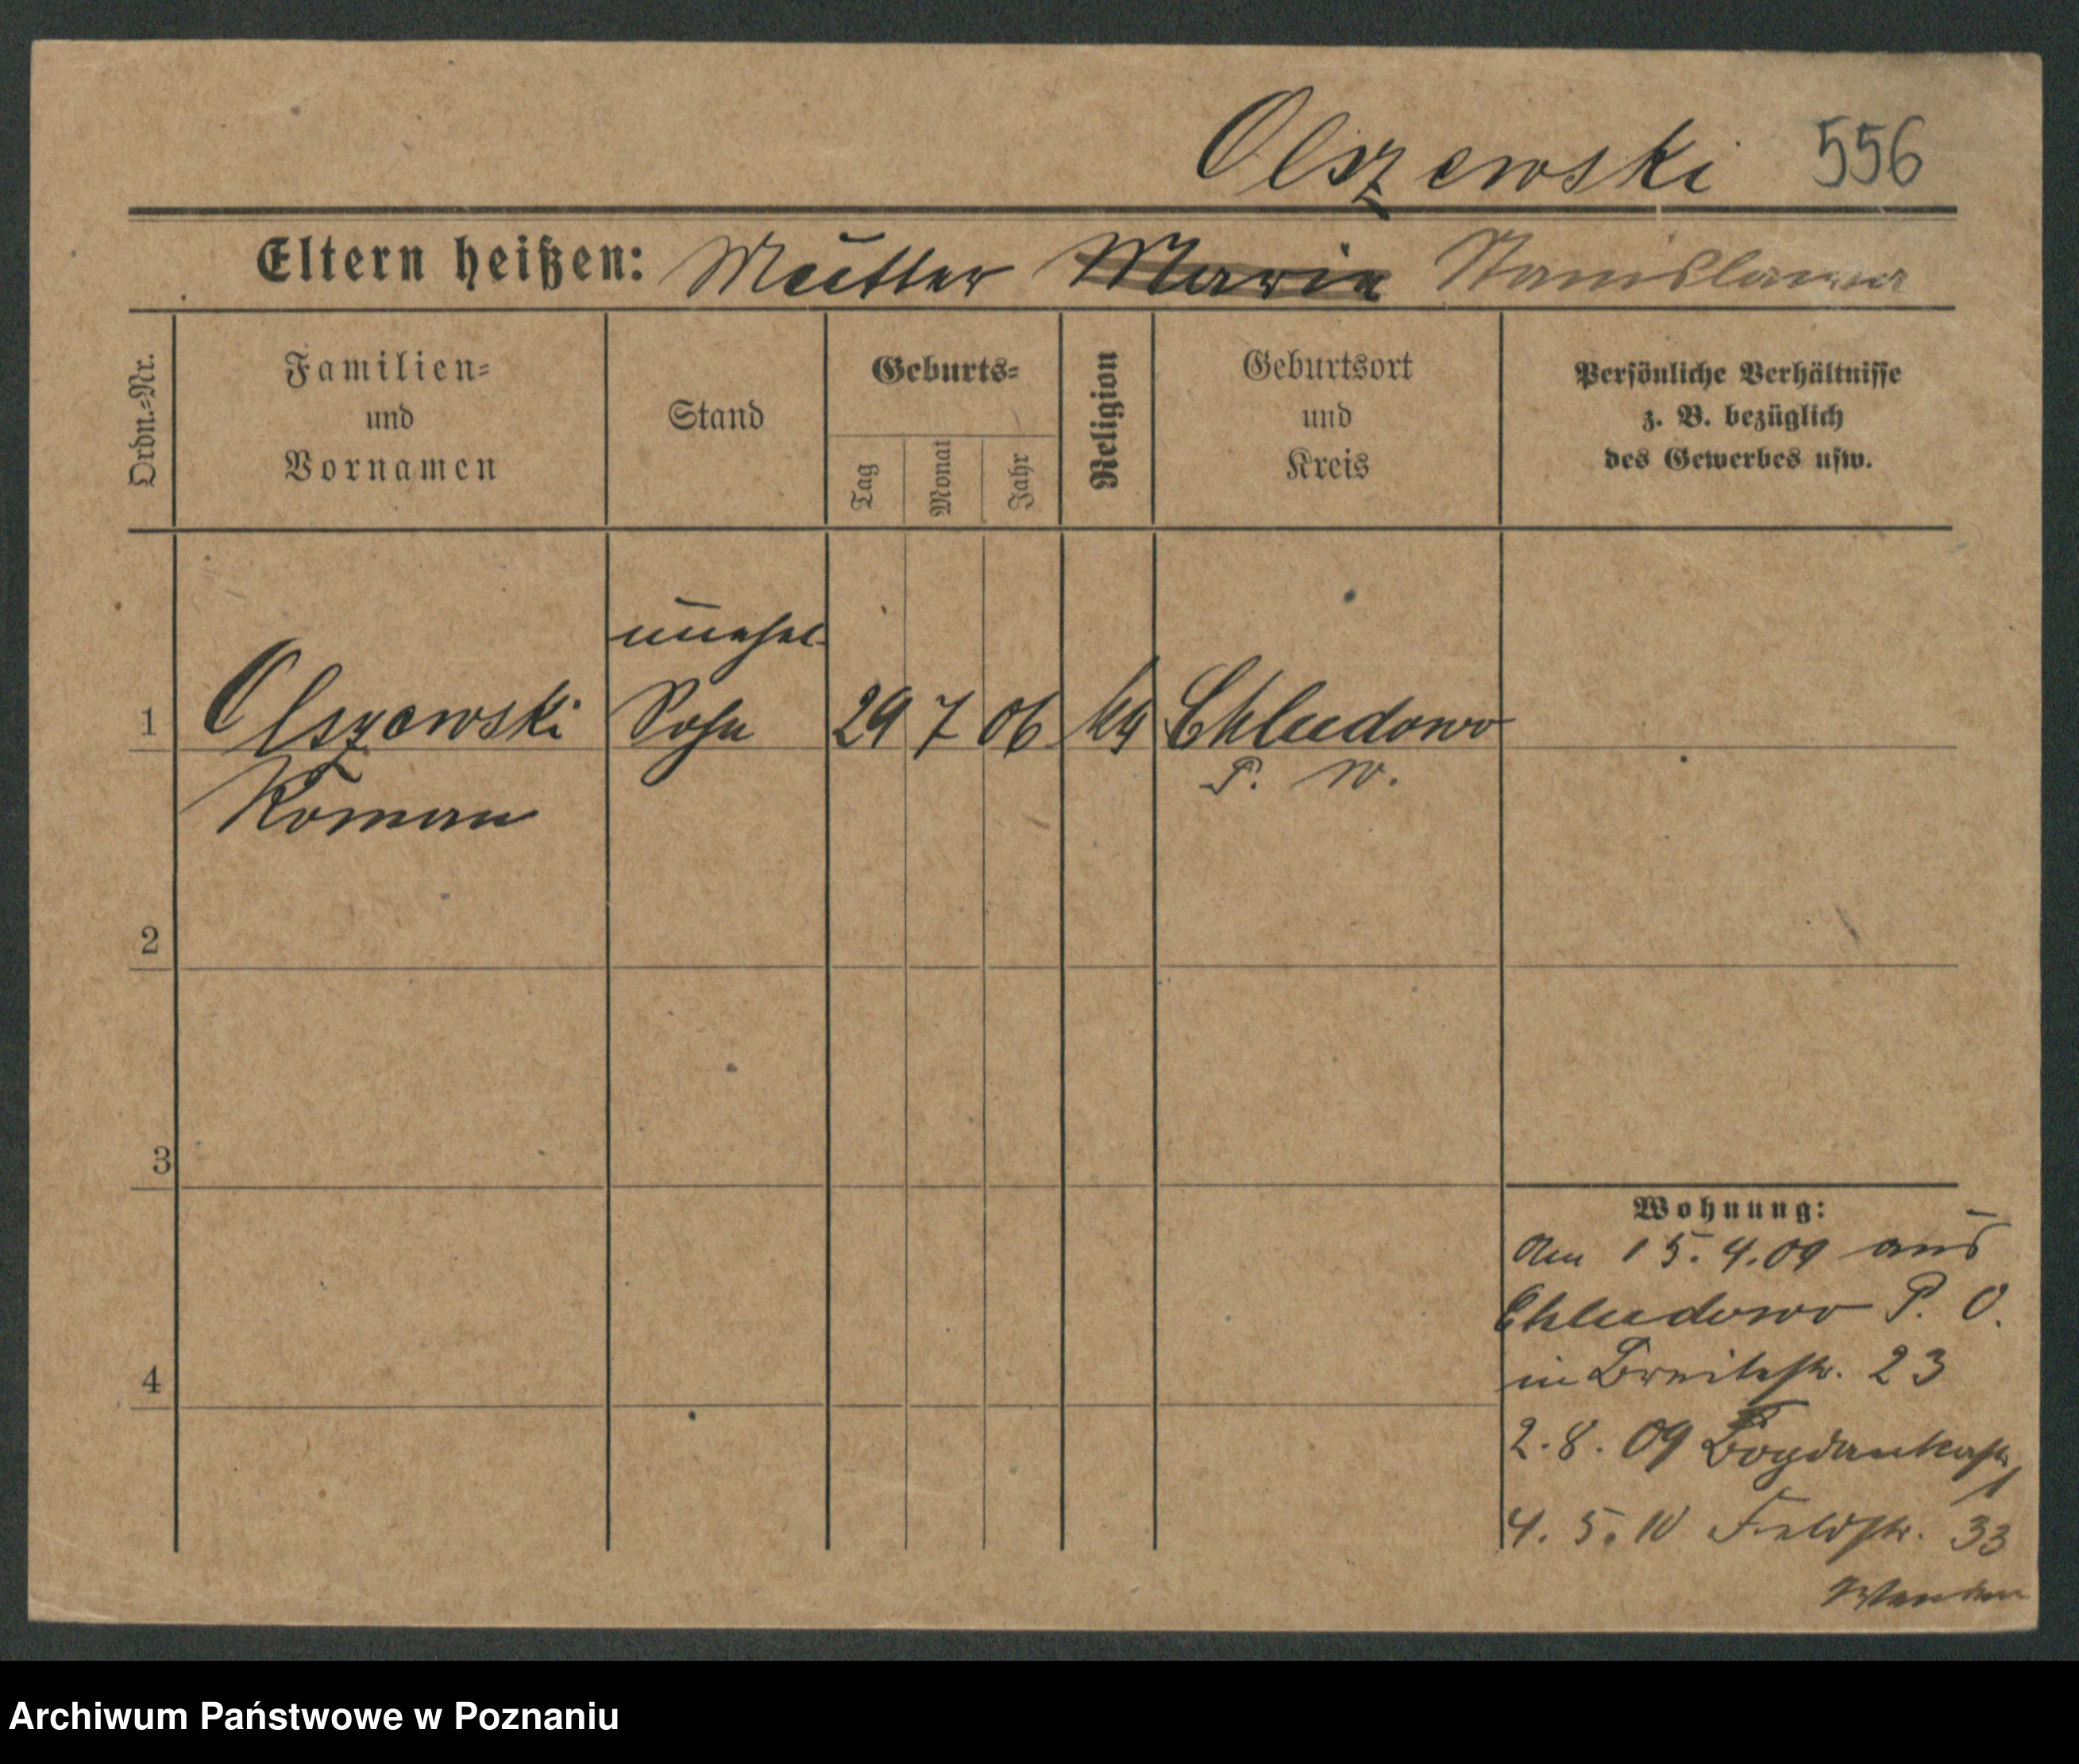 Olszewski 556
Eltern heißen: Mutter Maria Stanislawa
Ordn.-Nr.
Familien-
und
Vornamen
Stand
Geburts-
Tag
Monat
Jahr
Religion
Geburtsort
und
Kreis
Persönliche Verhältnisse
z. B. bezüglich
des Gewerbes usw.
unehel
1 Olszewski Sohn 29 7 06 Chludowo
Roman P. W.
2
3
4
Wohnung:
Am 15.4.09 aus
Chludowo P. O.
in Breitestr. 23
2.8.09 Bogdankastr
1
4.5.10 Feldstr. 33
Wenden
Archiwum Państwowe w Poznaniu